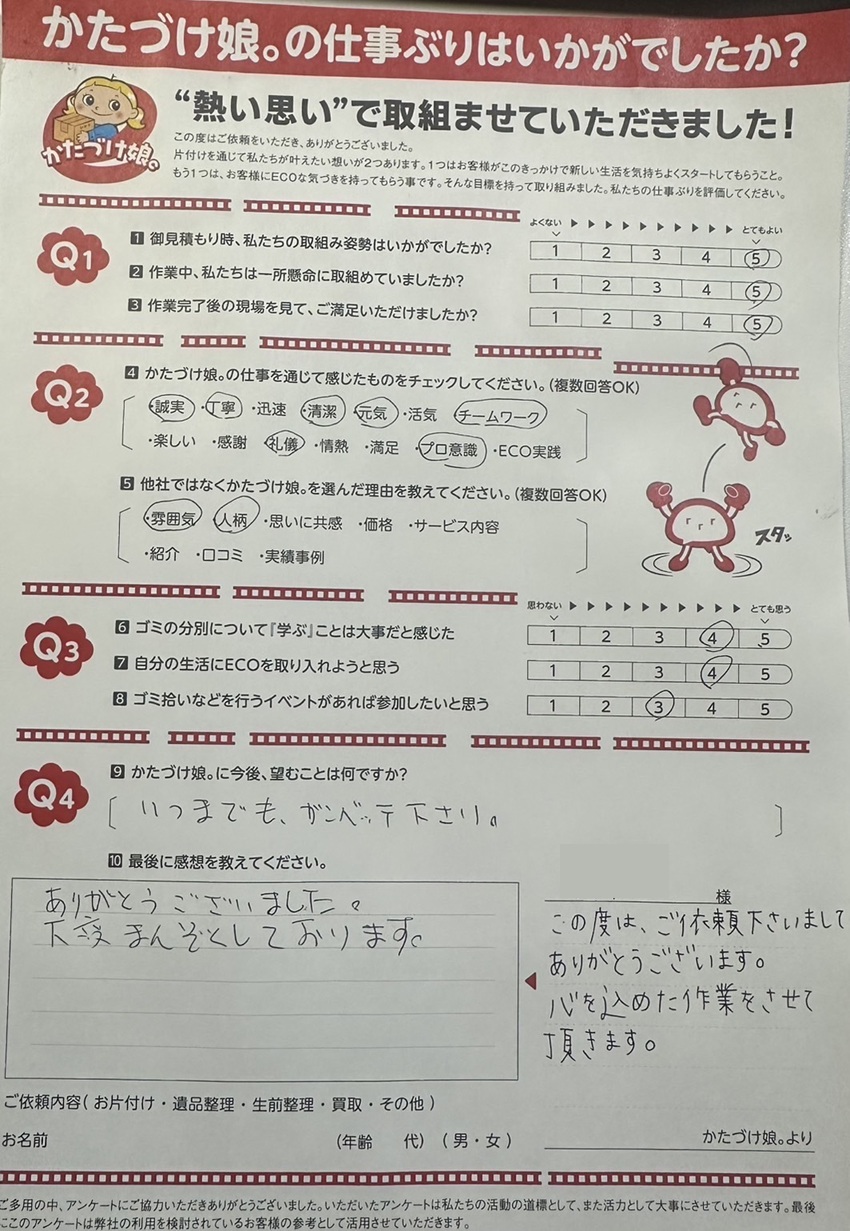 かたづけ娘。の仕事ぶりはいかがでしたか？
かたづけ娘。
“熱い思い”で取組ませていただきました！
この度はご依頼をいただき、ありがとうございました。
片付けを通じて私たちが叶えたい想いが2つあります。1つはお客様がこのきっかけで新しい生活を気持ちよくスタートしてもらうこと。
もう1つは、お客様にECOな気づきを持ってもらう事です。そんな目標を持って取り組みました。私たちの仕事ぶりを評価してください。
よくない とてもよい
Q1
1 御見積もり時、私たちの取組み姿勢はいかがでしたか？ 1 2 3 4 5
2 作業中、私たちは一所懸命に取組めていましたか？ 1 2 3 4 5
3 作業完了後の現場を見て、ご満足いただけましたか？ 1 2 3 4 5
Q2
4 かたづけ娘。の仕事を通じて感じたものをチェックしてください。（複数回答OK）
・誠実 ・丁寧 ・迅速 ・清潔 ・元気 ・活気 ・チームワーク
・楽しい ・感謝 ・礼儀 ・情熱 ・満足 ・プロ意識 ・ECO実践
5 他社ではなくかたづけ娘。を選んだ理由を教えてください。（複数回答OK）
・雰囲気 ・人柄 ・思いに共感 ・価格 ・サービス内容
・紹介 ・口コミ ・実績事例
スタッ
思わない とても思う
Q3
6 ゴミの分別について『学ぶ』ことは大事だと感じた 1 2 3 4 5
7 自分の生活にECOを取り入れようと思う 1 2 3 4 5
8 ゴミ拾いなどを行うイベントがあれば参加したいと思う 1 2 3 4 5
Q4
9 かたづけ娘。に今後、望むことは何ですか？
いつまでも、ガンバッテ下さい。
10 最後に感想を教えてください。
ありがとうございました。
大変まんぞくしております。
様
この度は、ご依頼下さいまして
ありがとうございます。
心を込めた作業をさせて
頂きます。
かたづけ娘。より
ご依頼内容（ お片付け・遺品整理・生前整理・買取・その他 ）
お名前 （年齢 代） （ 男・女 ）
ご多用の中、アンケートにご協力いただきありがとうございました。いただいたアンケートは私たちの活動の道標として、また活力として大事にさせていただきます。最後
にこのアンケートは弊社の利用を検討されているお客様の参考として活用させていただきます。